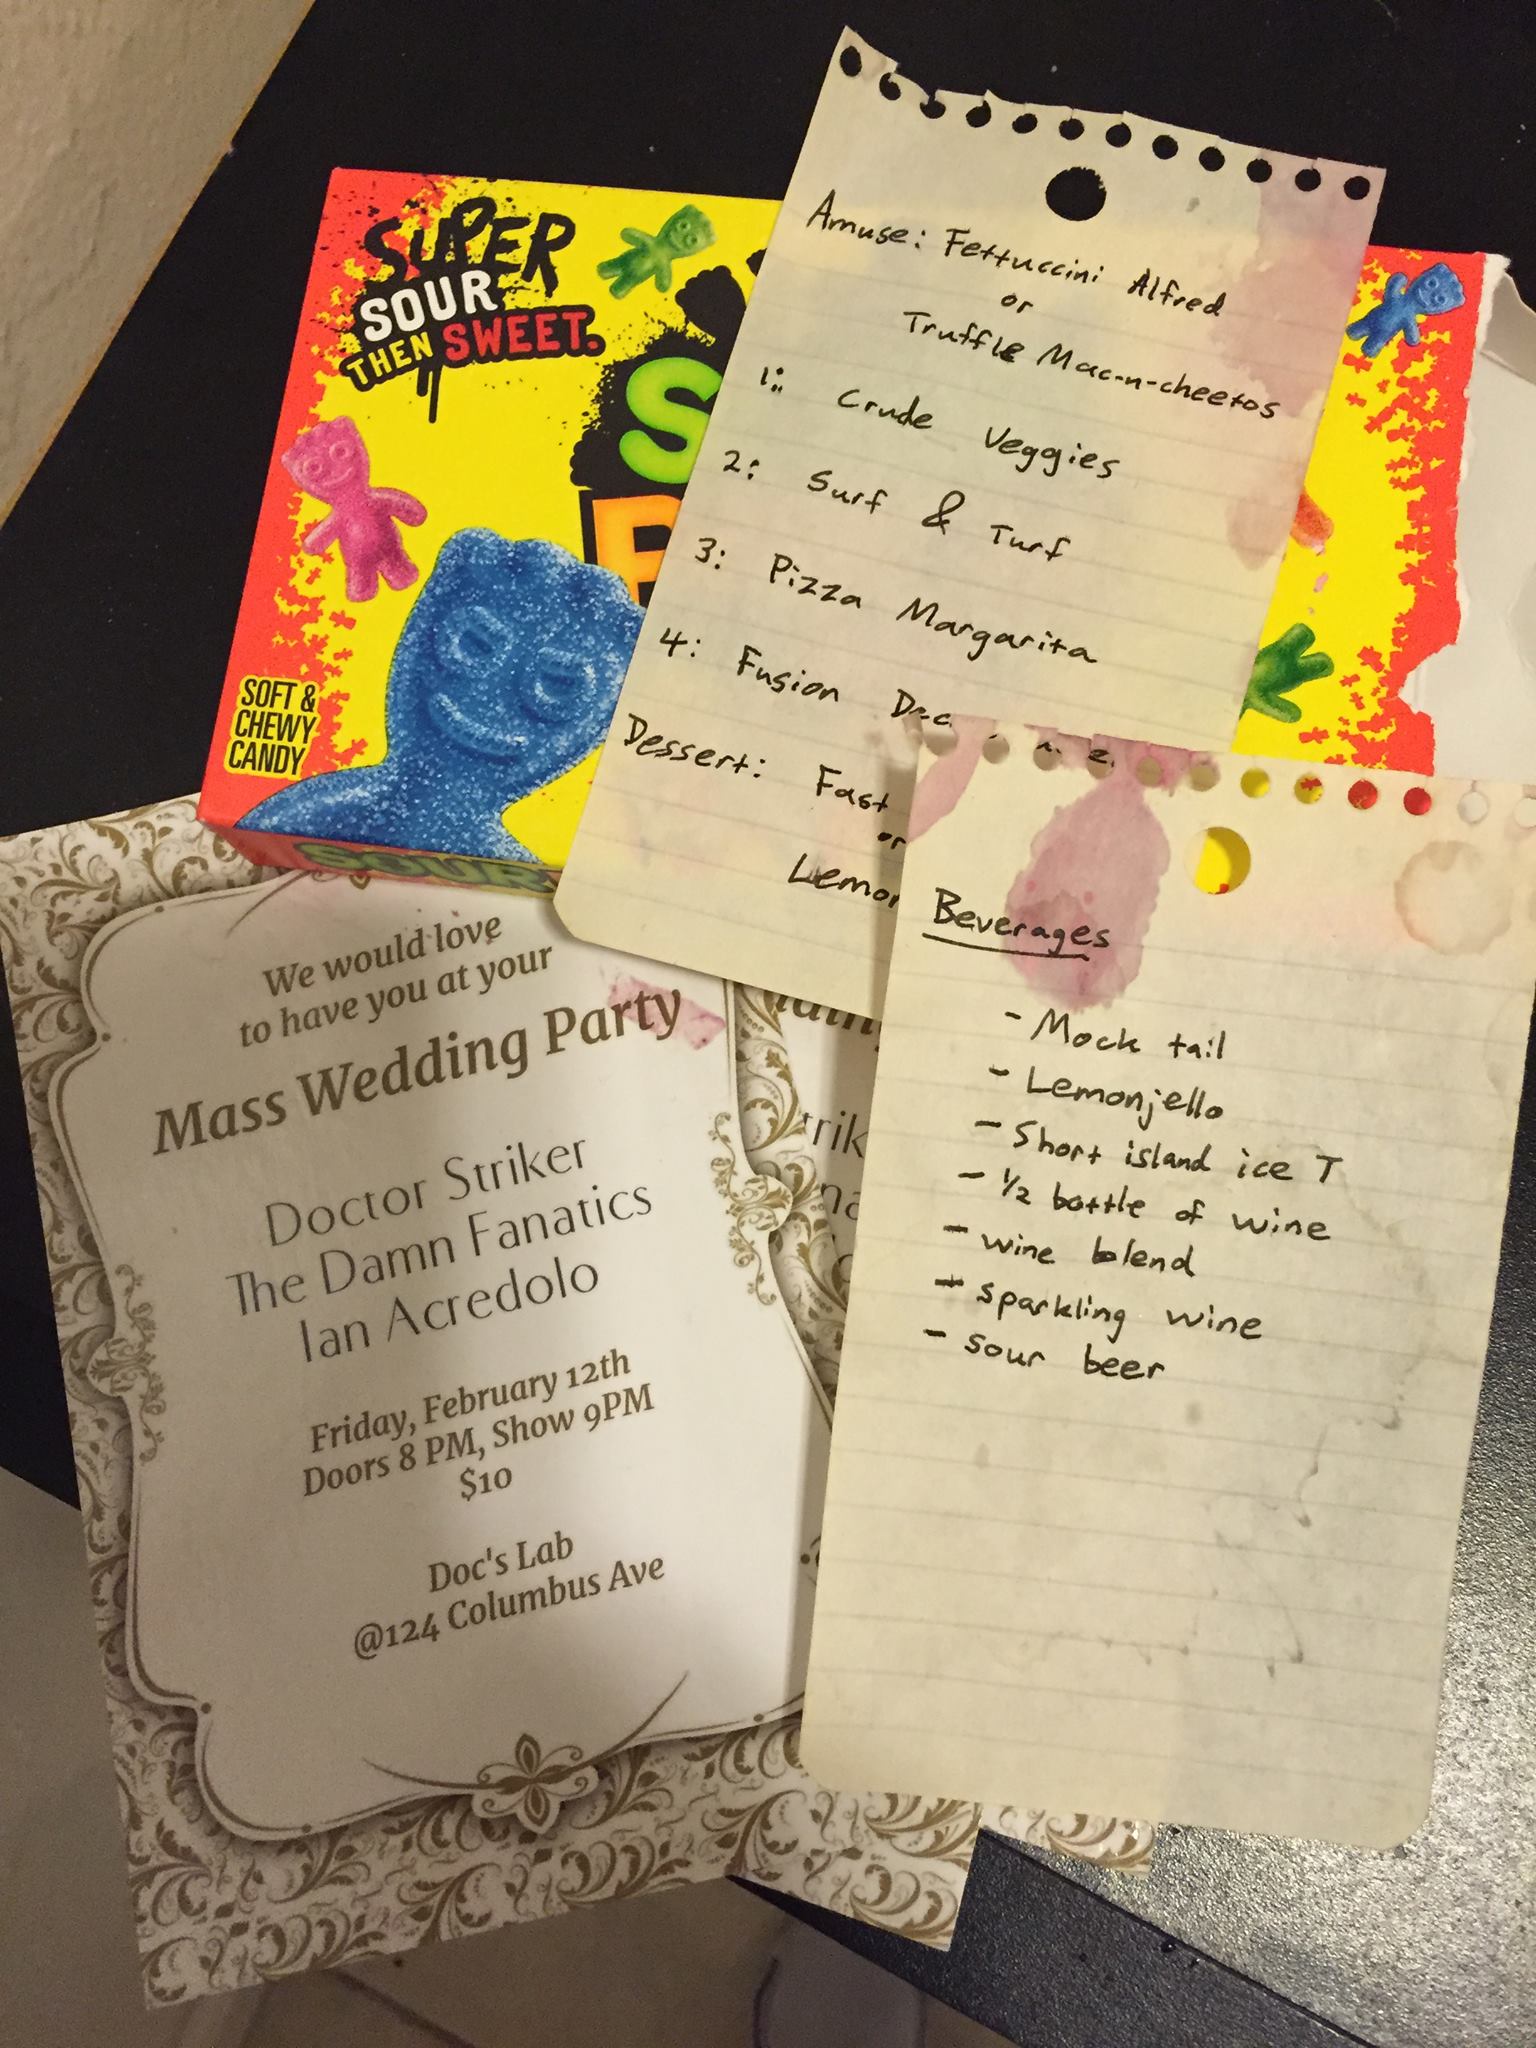 SUPER
SOUR
THEN SWEET.
SOFT &
CHEWY
CANDY
SOUR
Amuse: Fettuccini Alfred
or
Truffle Mac-n-cheetos
1: Crude Veggies
2: Surf & Turf
3: Pizza Margarita
4: Fusion
Dessert: Fast
or
Lemon
We would love
to have you at your
Mass Wedding Party
Doctor Striker
The Damn Fanatics
Ian Acredolo
Friday, February 12th
Doors 8 PM, Show 9PM
$10
Doc's Lab
@124 Columbus Ave
Beverages
- Mock tail
- Lemonjello
- Short island ice T
- 1/2 bottle of wine
- wine blend
- sparkling wine
- sour beer